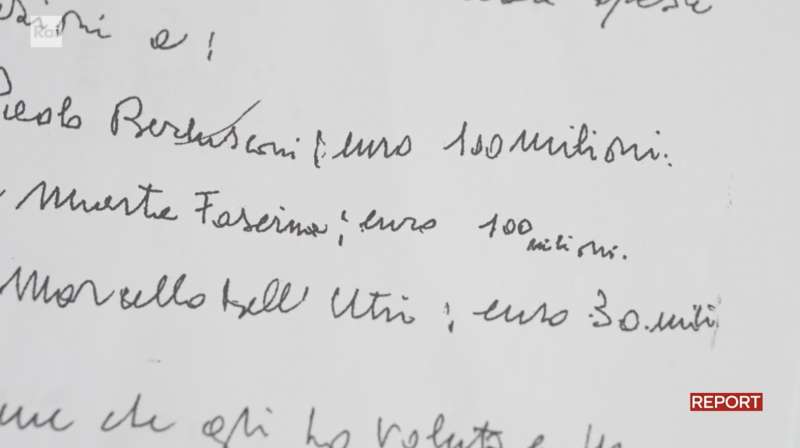 Rai
a:
Paolo Berlusconi: euro 100 milioni.
Marta Fascina; euro 100 milioni.
Marcello Dell'Utri: euro 30 mili
che gli ho voluto e
REPORT